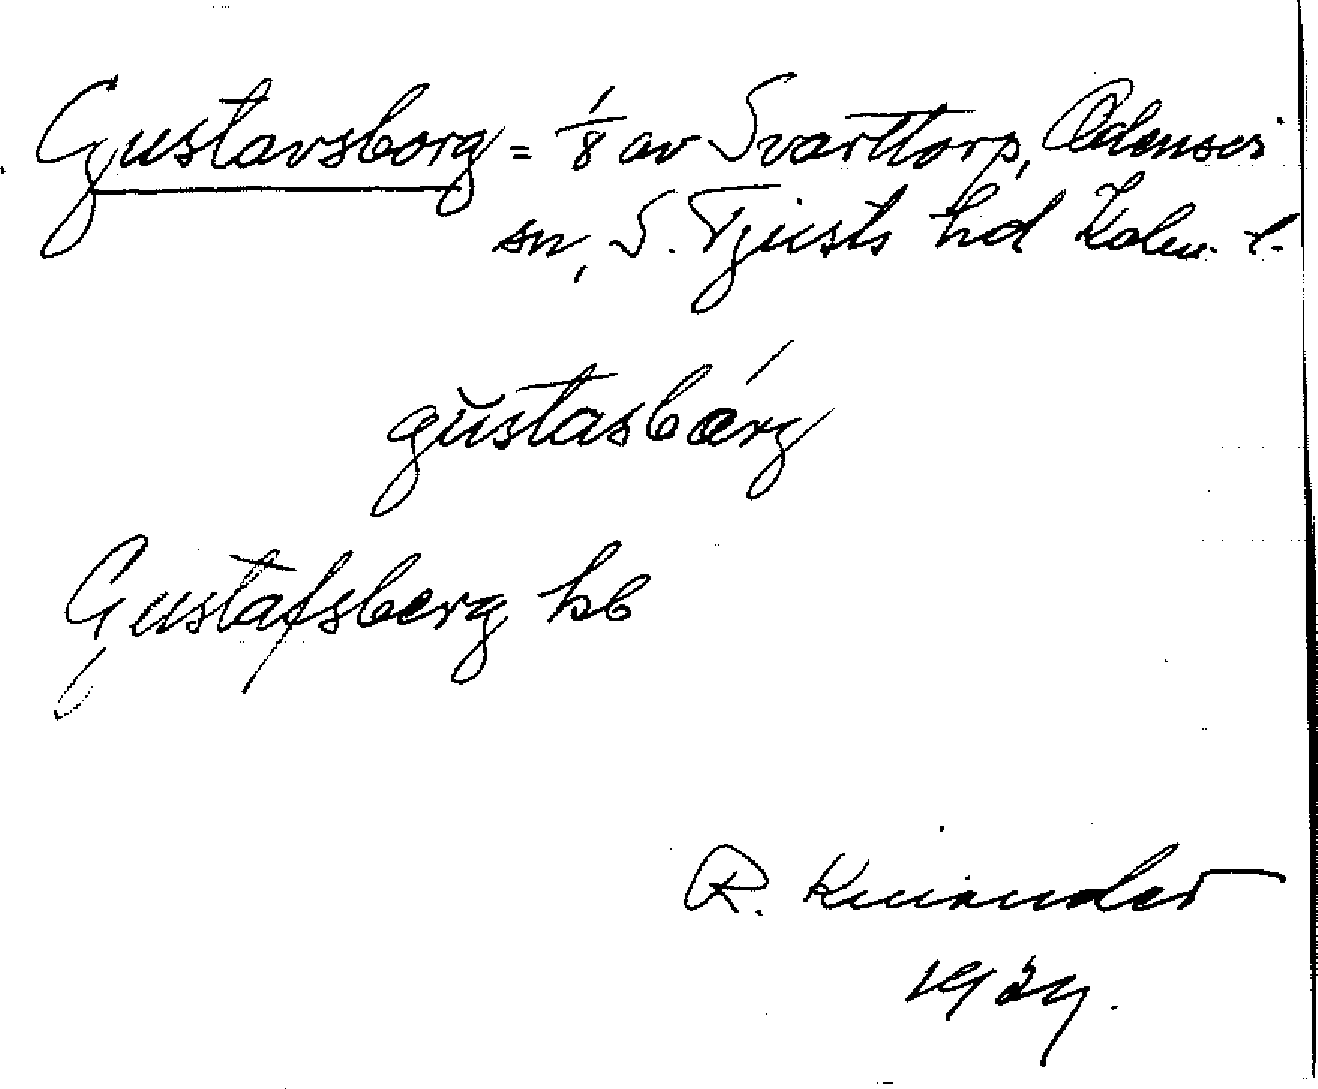 Gustavsborg = 1/8 av Svarttorp, Odensvi
sn, S. Tjusts hd Kalm. l.
gŭstasbǽrg
Gustafsberg hb
R. Kinander
1929.